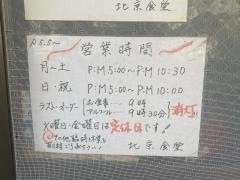 北京食堂
R.5.5〜
営業時間
月〜土 P:M 5:00〜P:M 10:30
日・祝 P:M 5:00〜P:M 10:00
ラスト・オーダー お食事… 9時
アルコール… 9時30分
火曜日・金曜日は定休日です!
その他臨時休業も
北京食堂